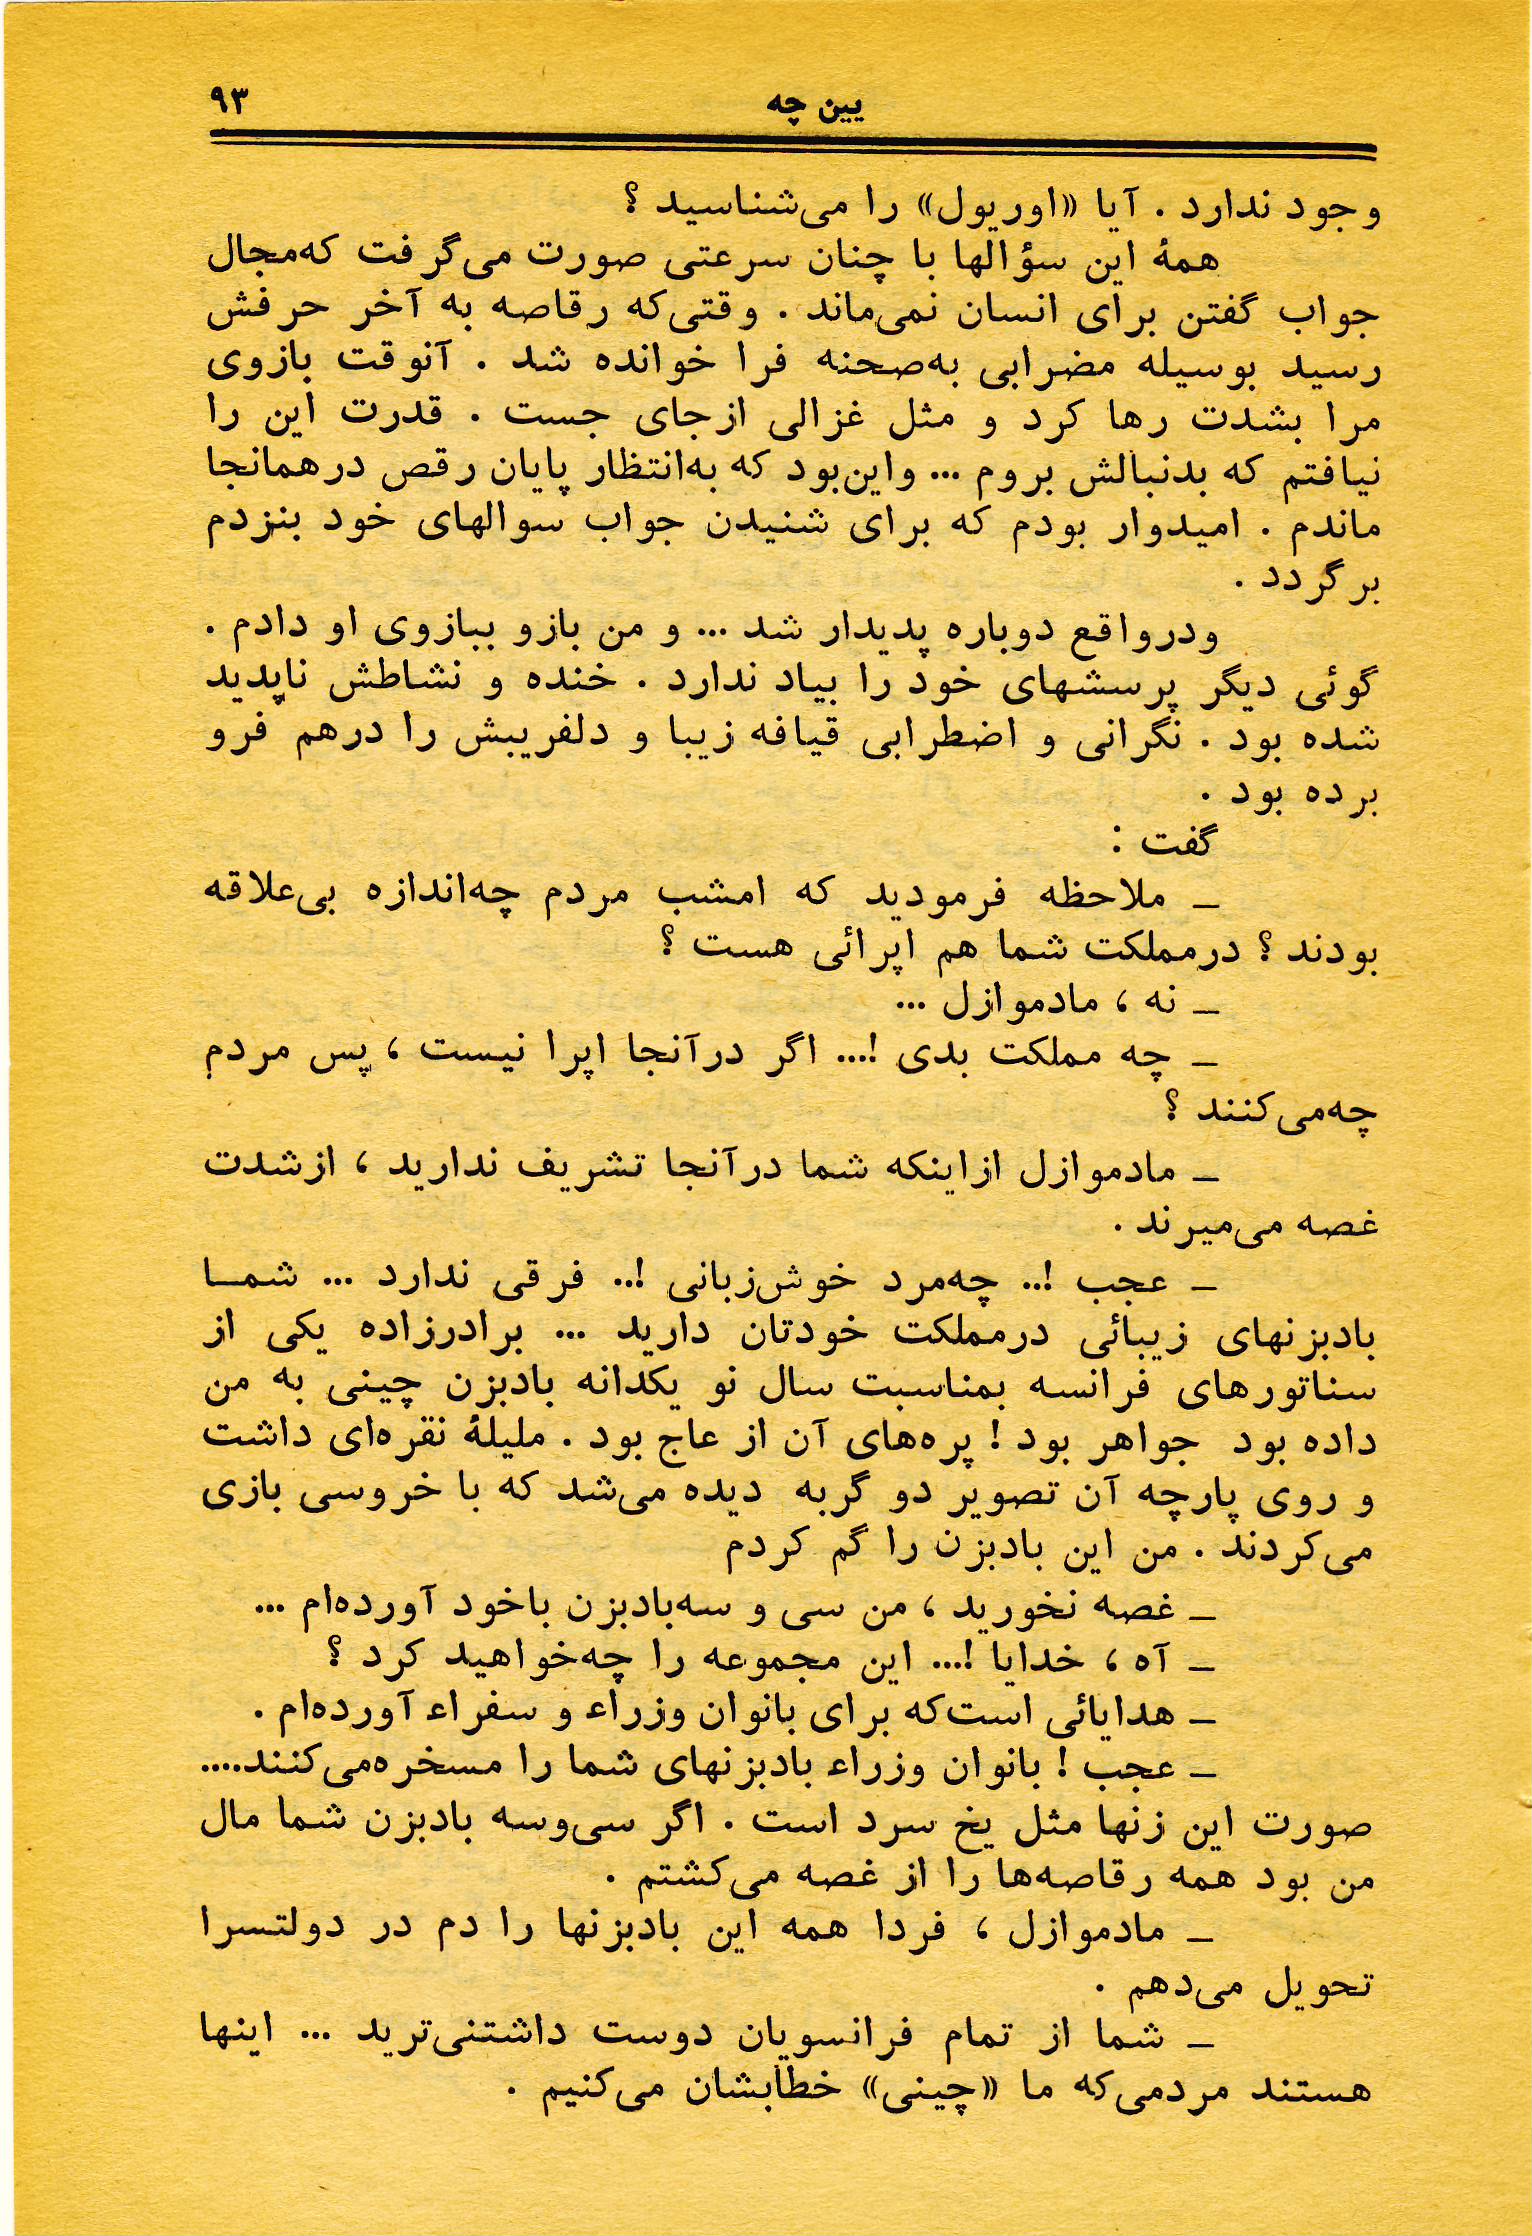 یین چه ۹۳
وجود ندارد . آیا «اوریول» را می‌شناسید ؟
همهٔ این سؤالها با چنان سرعتی صورت می‌گرفت که‌مجال
جواب گفتن برای انسان نمی‌ماند . وقتی‌که رقاصه به آخر حرفش
رسید بوسیله مضرابی به‌صحنه فرا خوانده شد . آنوقت بازوی
مرا بشدت رها کرد و مثل غزالی ازجای جست . قدرت این را
نیافتم که بدنبالش بروم ... واین‌بود که به‌انتظار پایان رقص درهمانجا
ماندم . امیدوار بودم که برای شنیدن جواب سوالهای خود بنزدم
برگردد .
ودرواقع دوباره پدیدار شد ... و من بازو ببازوی او دادم .
گوئی دیگر پرسشهای خود را بیاد ندارد . خنده و نشاطش ناپدید
شده بود . نگرانی و اضطرابی قیافه زیبا و دلفریبش را درهم فرو
برده بود .
گفت :
_ ملاحظه فرمودید که امشب مردم چه‌اندازه بی‌علاقه
بودند ؟ درمملکت شما هم اپرائی هست ؟
_ نه ، مادموازل ...
_ چه مملکت بدی !... اگر درآنجا اپرا نیست ، پس مردم
چه‌می‌کنند ؟
_ مادموازل ازاینکه شما درآنجا تشریف ندارید ، ازشدت
غصه می‌میرند .
_ عجب !.. چه‌مرد خوش‌زبانی !.. فرقی ندارد ... شمـا
بادبزنهای زیبائی درمملکت خودتان دارید ... برادرزاده یکی از
سناتورهای فرانسه بمناسبت سال نو یکدانه بادبزن چینی به من
داده بود جواهر بود ! پره‌های آن از عاج بود . ملیلهٔ نقره‌ای داشت
و روی پارچه آن تصویر دو گربه دیده می‌شد که با خروسی بازی
می‌کردند . من این بادبزن را گم کردم
_ غصه نخورید ، من سی و سه‌بادبزن باخود آورده‌ام ...
_ آه ، خدایا !... این مجموعه را چه‌خواهید کرد ؟
_ هدایائی است‌که برای بانوان وزراء و سفراء آورده‌ام .
_ عجب ! بانوان وزراء بادبزنهای شما را مسخره‌می‌کنند....
صورت این زنها مثل یخ سرد است . اگر سی‌وسه بادبزن شما مال
من بود همه رقاصه‌ها را از غصه می‌کشتم .
_ مادموازل ، فردا همه این بادبزنها را دم در دولتسرا
تحویل می‌دهم .
_ شما از تمام فرانسویان دوست داشتنی‌ترید ... اینها
هستند مردمی‌که ما «چینی» خطابشان می‌کنیم .